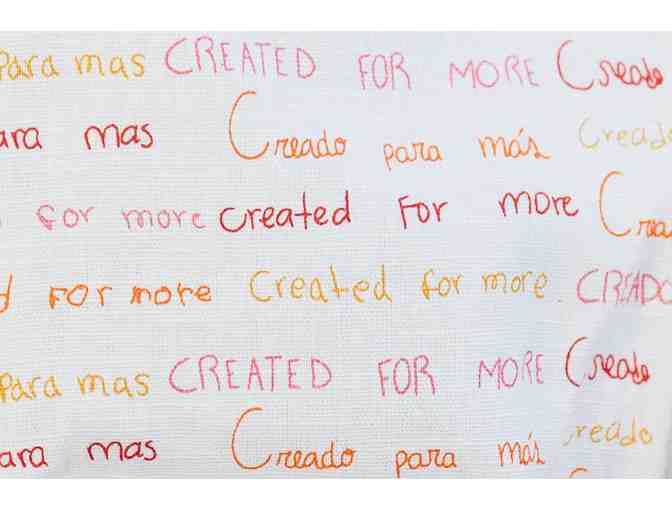 Para mas CREATED FOR MORE Creado
ara mas Creado para más Creado
for more created For more Crea
d FOR more Created for more. CREADO
Para mas CREATED FOR MORE Creado
ara mas Creado para más reado